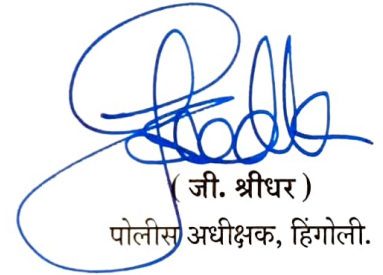 ( जी. श्रीधर )
पोलीस अधीक्षक, हिंगोली.